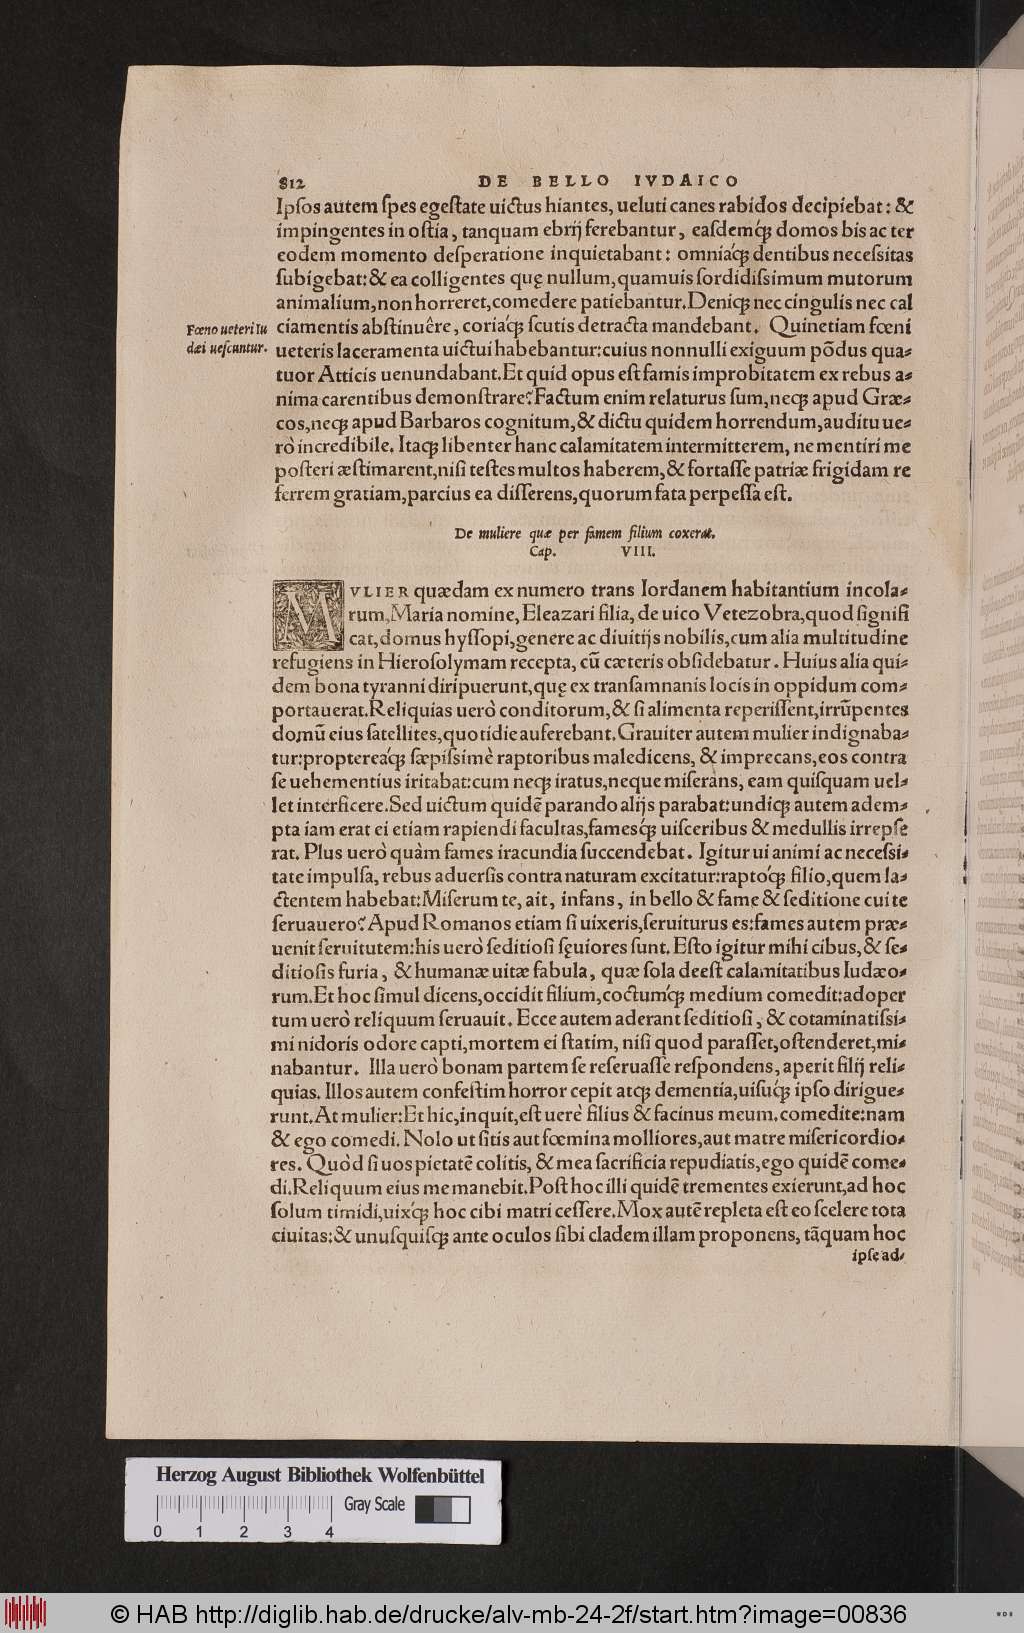 812 DE BELLO IVDAICO
Ipſos autem ſpes egeſtate uictus hiantes, ueluti canes rabidos decipiebat: &
impingentes in oſtia, tanquam ebrij ferebantur, eaſdemq́ꝫ domos bis ac ter
eodem momento deſperatione inquietabant: omniaq́ꝫ dentibus neceſsitas
ſubigebat: & ea colligentes quę nullum, quamuis ſordidiſsimum mutorum
animalium, non horreret, comedere patiebantur. Deniqꝫ nec cingulis nec cal
Fœno ueteri Iu
dæi ueſcuntur.
ciamentis abſtinuêre, coriaq́ꝫ ſcutis detracta mandebant. Quinetiam fœni
ueteris laceramenta uictui habebantur: cuius nonnulli exiguum põdus qua⸗
tuor Atticis uenundabant. Et quid opus eſt famis improbitatem ex rebus a⸗
nima carentibus demonſtrare? Factum enim relaturus ſum, neqꝫ apud Græ⸗
cos, neqꝫ apud Barbaros cognitum, & dictu quidem horrendum, auditu ue⸗
rò incredibile. Itaqꝫ libenter hanc calamitatem intermitterem, ne mentiri me
poſteri æſtimarent, niſi teſtes multos haberem, & fortaſſe patriæ frigidam re
ferrem gratiam, parcius ea diſſerens, quorum fata perpeſſa eſt.
De muliere quæ per famem filium coxerat.
Cap. VIII.
MVLIER quædam ex numero trans Iordanem habitantium incola⸗
rum, Maria nomine, Eleazari filia, de uico Vetezobra, quod ſignifi
cat, domus hyſſopi, genere ac diuitijs nobilis, cum alia multitudine
refugiens in Hieroſolymam recepta, cũ cæteris obſidebatur. Huius alia qui⸗
dem bona tyranni diripuerunt, quę ex tranſamnanis locis in oppidum com⸗
portauerat. Reliquias uerò conditorum, & ſi alimenta reperiſſent, irrũpentes
domũ eius ſatellites, quotidie auferebant. Grauiter autem mulier indignaba⸗
tur: proptereaq́ꝫ ſæpiſsimè raptoribus maledicens, & imprecans, eos contra
ſe uehementius iritabat: cum neqꝫ iratus, neque miſerans, eam quiſquam uel⸗
let interficere. Sed uictum quidẽ parando alijs parabat: undiqꝫ autem adem⸗
pta iam erat ei etiam rapiendi facultas, famesq́ꝫ uiſceribus & medullis irrepſe
rat. Plus uerò quàm fames iracundia ſuccendebat. Igitur ui animi ac neceſsi⸗
tate impulſa, rebus aduerſis contra naturam excitatur: raptoq́ꝫ filio, quem la⸗
ctentem habebat: Miſerum te, ait, infans, in bello & fame & ſeditione cui te
ſeruauero? Apud Romanos etiam ſi uixeris, ſeruiturus es: fames autem præ⸗
uenit ſeruitutem: his uerò ſeditioſi ſęuiores ſunt. Eſto igitur mihi cibus, & ſe⸗
ditioſis furia, & humanæ uitæ fabula, quæ ſola deeſt calamitatibus Iudæo⸗
rum. Et hoc ſimul dicens, occidit filium, coctumq́ꝫ medium comedit: adoper
tum uerò reliquum ſeruauit. Ecce autem aderant ſeditioſi, & cotaminatiſsi⸗
mi nidoris odore capti, mortem ei ſtatim, niſi quod paraſſet, oſtenderet, mi⸗
nabantur. Illa uerò bonam partem ſe reſeruaſſe reſpondens, aperit filij reli⸗
quias. Illos autem confeſtim horror cepit atqꝫ dementia, uiſuq́ꝫ ipſo dirigue⸗
runt. At mulier: Et hic, inquit, eſt uerè filius & facinus meum. comedite: nam
& ego comedi. Nolo ut ſitis aut fœmina molliores, aut matre miſericordio⸗
res. Quòd ſi uos pietatẽ colitis, & mea ſacrificia repudiatis, ego quidẽ come⸗
di. Reliquum eius me manebit. Poſt hoc illi quidẽ trementes exierunt, ad hoc
ſolum timidi, uixq́ꝫ hoc cibi matri ceſſere. Mox autẽ repleta eſt eo ſcelere tota
ciuitas: & unuſquiſqꝫ ante oculos ſibi cladem illam proponens, tãquam hoc
ipſe ad⸗
Herzog August Bibliothek Wolfenbüttel
Gray Scale
0 1 2 3 4
© HAB http://diglib.hab.de/drucke/alv-mb-24-2f/start.htm?image=00836